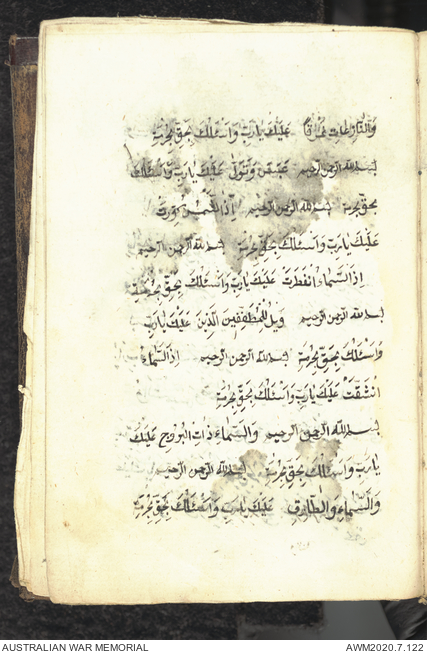 وَالنَّازِعَاتِ غَرْقًا عَلَيْكَ يَارَبِّ وَاَسْئَلُكَ بِحَقِّ بِحُرْمَةِ
بسم الله الرحمن الرحيم عَبَسَ وَتَوَلّٰى عَلَيْكَ يَارَبِّ وَاَسْئَلُكَ
بحقِّ بحرمة بسم الله الرحمن الرحيم اِذَا الشَّمْسُ كُوِّرَتْ
عَلَيْكَ يَارَبِّ وَاَسْئَلُكَ بِحَقِّ بِحُرْمَةِ بسم الله الرحمن الرحيم
اِذَا السَّمَاءُ انْفَطَرَتْ عَلَيْكَ يَارَبِّ وَاَسْئَلُكَ بِحَقِّ
بسم الله الرحمن الرحيم وَيْلٌ لِلْمُطَفِّفِينَ الَّذِينَ عَلَيْكَ يَارَبِّ
وَاَسْئَلُكَ بِحَقِّ بِحُرْمَةِ بسم الله الرحمن الرحيم اِذَا السَّمَاءُ
انْشَقَّتْ عَلَيْكَ يَارَبِّ وَاَسْئَلُكَ بِحَقِّ بِحُرْمَةِ
بسم الله الرحمن الرحيم وَالسَّمَاءِ ذَاتِ الْبُرُوجِ عَلَيْكَ
يَارَبِّ وَاَسْئَلُكَ بِحَقِّ بِحُرْمَةِ بسم الله الرحمن الرحيم
وَالسَّمَاءِ وَالطَّارِقِ عَلَيْكَ يَارَبِّ وَاَسْئَلُكَ بِحَقِّ بِحُرْمَةِ
AUSTRALIAN WAR MEMORIAL AWM2020.7.122